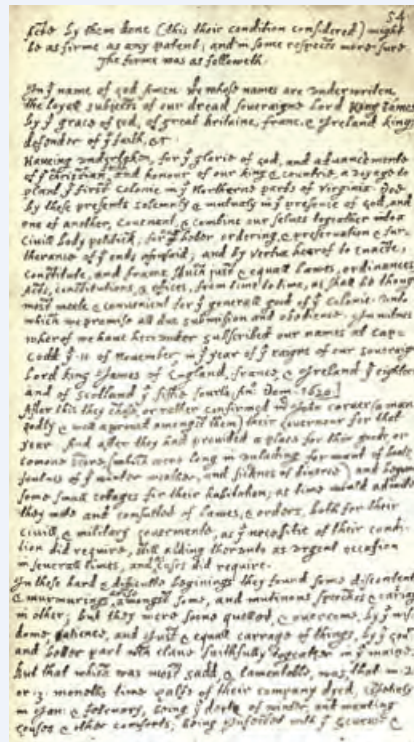 54
facto by them done (this their condition considered) might
be as firme as any patent; and in some respects more sure.
The forme was as followeth.
In yͤ name of god Amen. We whose names are underwriten,
the loyall subjects of our dread soveraigne Lord King James
by yͤ grace of god, of great Britaine, franc, & Ireland king,
defender of yͤ faith, &c
Haveing undertaken, for yͤ glorie of god, and advancemente
of yͤ christian and honour of our king & countrie, a voyage to
plant yͤ first colonie in yͤ Northerne parts of Virginia. Doe
by these presents solemnly & mutualy in yͤ presence of god, and
one of another, covenant, & combine our selves togeather into a
civill body politick; for our better ordering, & preservation & fur-
therance of yͤ ends aforesaid; and by vertue hearof to enacte,
constitute, and frame shuch just & equall lawes, ordinances,
Acts, constitutions, & offices, from time to time, as shall be thought
most meete & convenient for yͤ generall good of yͤ Colonie: unto
which we promise all due submission and obedience. In witnes
wherof we have hereunder subscribed our names at Cap-
Codd yͤ .11. of November, in yͤ year of yͤ raigne of our soveraigne
Lord king James of England, france, & Ireland yͤ eighteen
and of Scotland yͤ fiftie fourth. Ano: Dom. 1620.]
After this they chose, or rather confirmed Mr. John Carver (a man
godly & well approved amongst them) their Governour for that
year. And after they had provided a place for their goods, or
comone store, (which were long in unlading for want of boats,
foulnes of yͤ winter weather, and sicknes of diverce) and begune
some small cottages for their habitation; as time would admitte
they mette and consulted of lawes, & orders, both for their
civill, & military Govermente, as yͤ necessitie of their condi-
tion did require, still adding therunto as urgent occasion
in severall times, and as cases did require.
In these hard & difficulte beginings they found some discontents
& murmurings arise amongst some, and mutinous speeches & cariags
in other; but they were soone quelled, & overcome, by yͤ wis-
dome, patience, and just & equall carrage of things, by yͤ Govr
and better part wch clave faithfully togeather in yͤ maine.
But that which was most sadd, & lamentable, was, that in .2.
or .3. moneths time halfe of their company dyed, espetialy
in Jan: & february, being yͤ depth of winter, and wanting
houses & other comforts; being infected with yͤ scurvie &